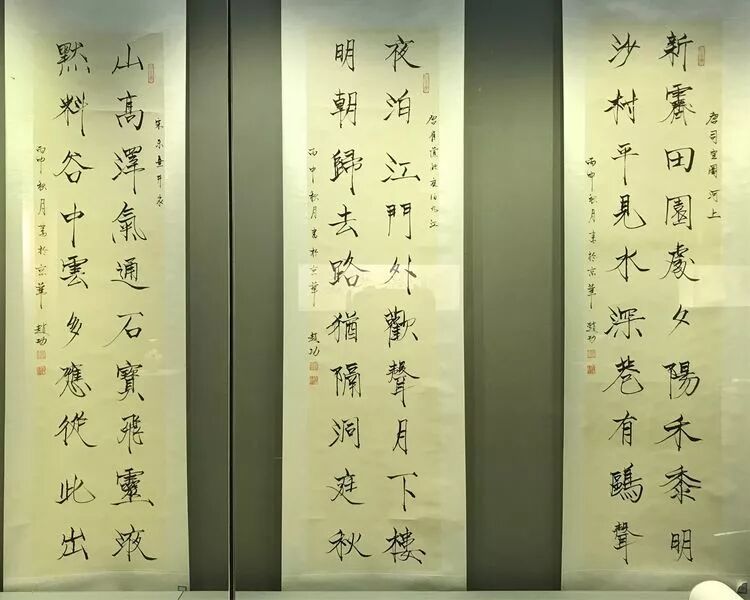 唐司空圖 河上
新霽田園處夕陽禾黍明
沙村平見水深巷有鷗聲
丙申秋月書於京華 趙功
唐 夜泊九江
夜泊江門外歡聲月下樓
明朝歸去路猶隔洞庭秋
丙申秋月書於京華 趙功
宋朱熹井泉
山高澤氣通石寶飛靈液
默料谷中雲多應從此出
丙申秋月書於京華 趙功